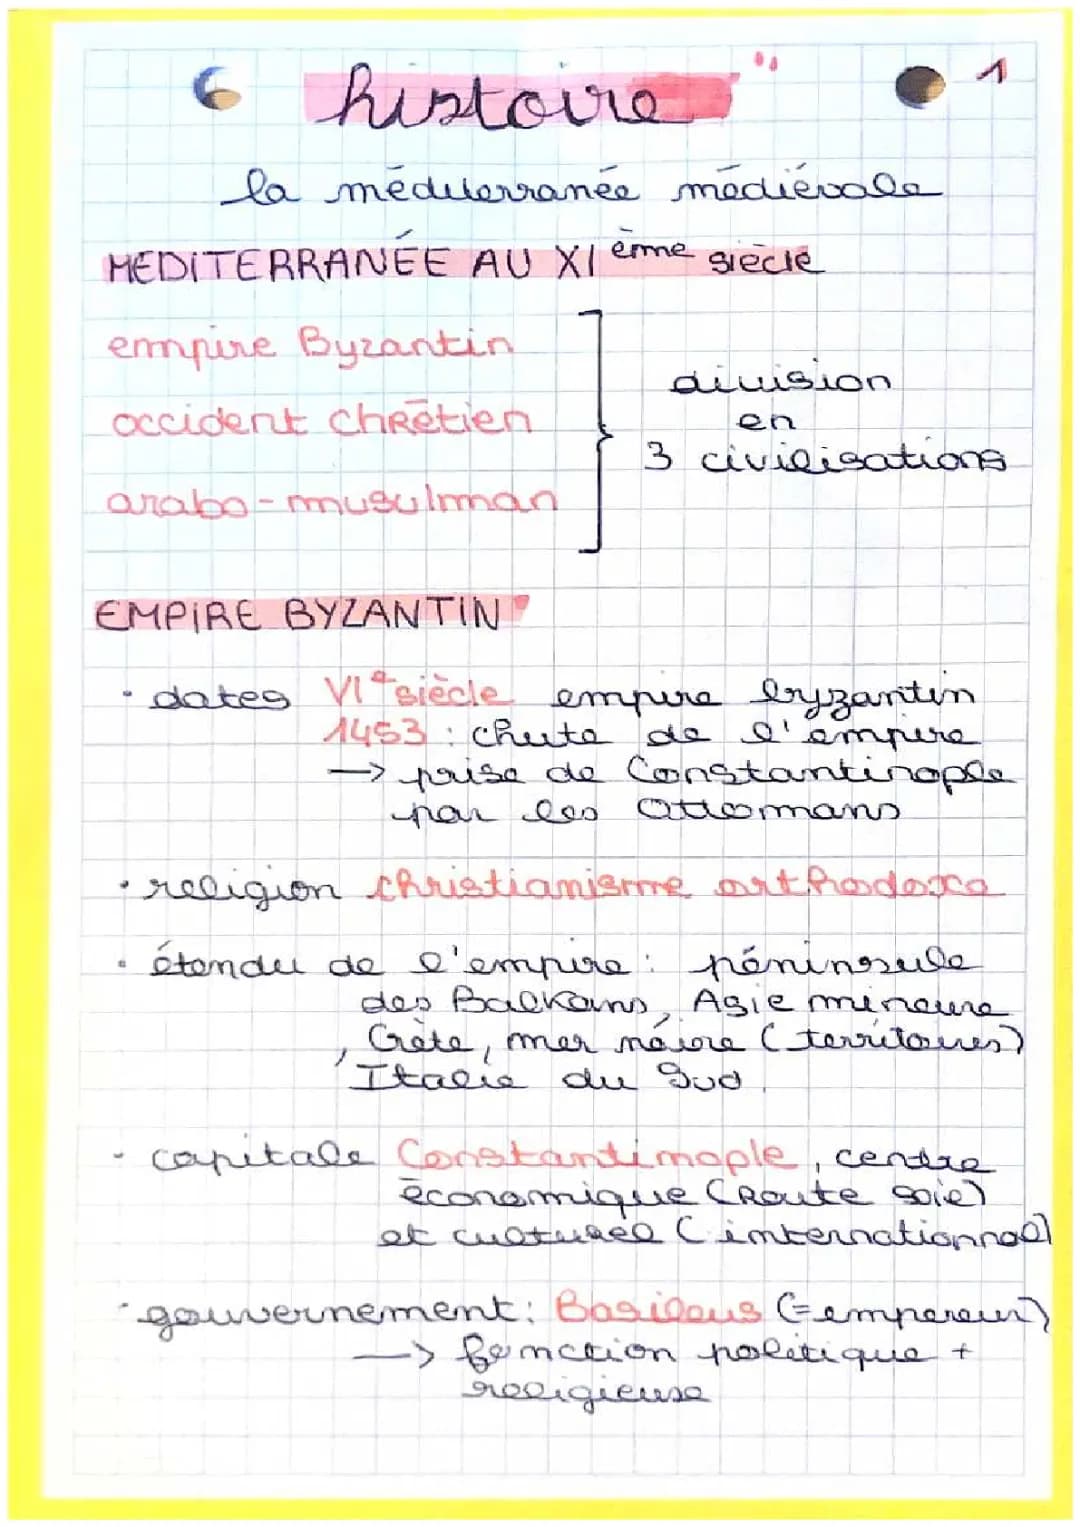 histoire
1
la méditerranée médiévale
MEDITERRANÉE AU XI ème siècle
empire Byzantin
occident chrétien
arabo-musulman
division
en
3 civilisations
EMPIRE BYZANTIN
• dates VIe siècle empire byzantin
1453 : chute de l'empire
→ prise de Constantinople
par les Ottomans
• religion christianisme orthodoxe
• étendu de l'empire : péninsule
des Balkans, Asie mineure
, Crète, mer noire (territoires)
Italie du Sud
• capitale Constantinople, centre
économique (Route soie)
et culturel (internationnal)
• gouvernement : Basileus (= empereur)
→ fonction politique +
religieuse